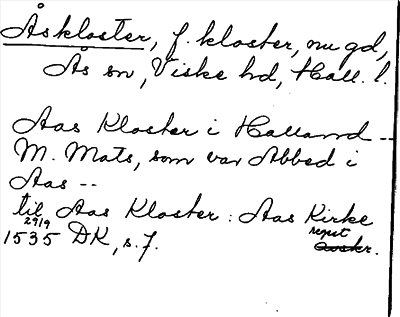 Åskloster, f. kloster, nu gd,
Ås sn, Viske hd, Hall. l.
Aas Kloster i Halland --
M. Mats, som var Abbed i
Aas --
til Aas Kloster : Aas Kirke
29/9
1535 DK, s. 7.